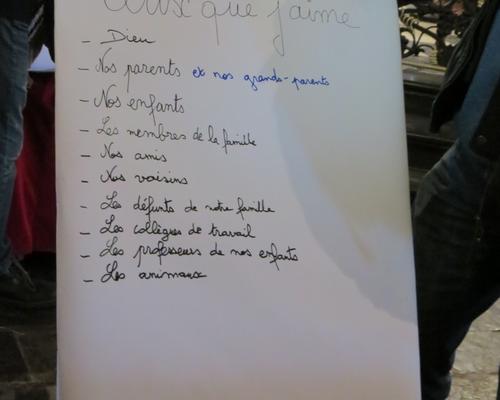 Ceux que j'aime
- Dieu
- Nos parents et nos grands-parents
- Nos enfants
- Les membres de la famille
- Nos amis
- Nos voisins
- Les défunts de notre famille
- Les collègues de travail
- Les professeurs de nos enfants
- Les animaux